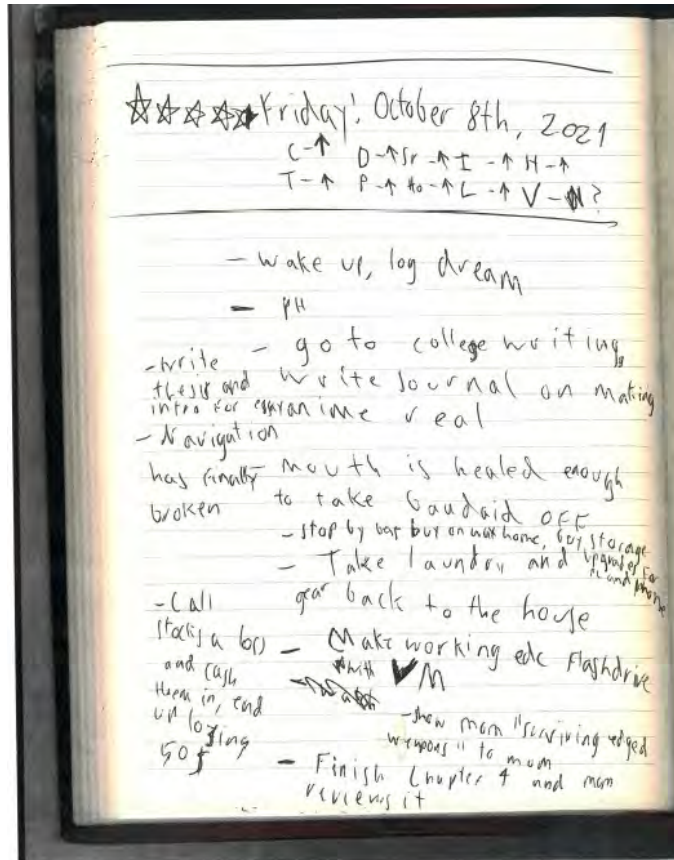 Friday: October 8th, 2021
C-↑ D-↑ Sr-↑ I-↑ H-↑
T-↑ P-↑ Ho-↑ L-↑ V- ?
- wake up, log dream
- PH
- go to college writing,
write journal on making
anime real
- write
thesis and
intro for essay
- Navigation
has finally
broken
mouth is healed enough
to take bandaid off
- stop by bar buy on way home, buy storage
upgrades for
PC and phone
- Take laundry and
gear back to the house
- Call
stocks a
and cash
them in, end
up losing
50$
- Make working edc flashdrive
with
M
- show mom "surviving edged
weapons" to mom
- Finish Chapter 4 and mom
reviews it